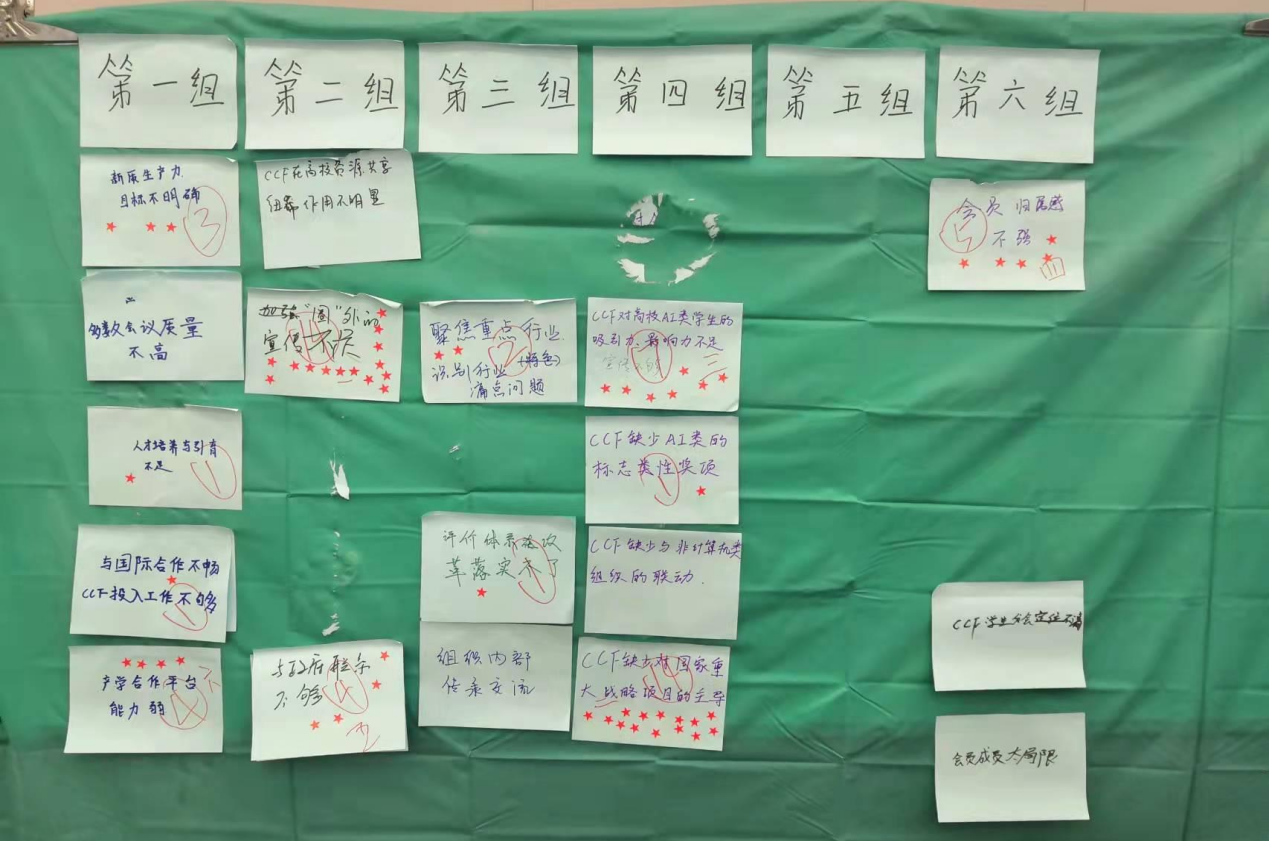 第一组
第二组
第三组
第四组
第五组
第六组
新质生产力
目标不明确
3
多数会议质量
不高
人才培养与引育
不足
1
与国际合作不畅
CCF投入工作不够
1
产学合作平台
能力弱
4
CCF在高校资源共享
纽带作用不明显
加强"圈"外的
宣传不够
14
与政府联系
不够
4
聚焦重点行业
识别行业(特色)
痛点问题
2
评价体系
革落实未了
1
组织内部
传承交流
CCF对高校AI类学生的
吸引力、影响力不足
三
CCF缺少AI类的
标志类性奖项
1
CCF缺少与非计算机类
组织的联动.
CCF缺少对国家重
大战略项目的主导
会员归属感
不强
5
CCF学生分会定位不清
会员成员大局限